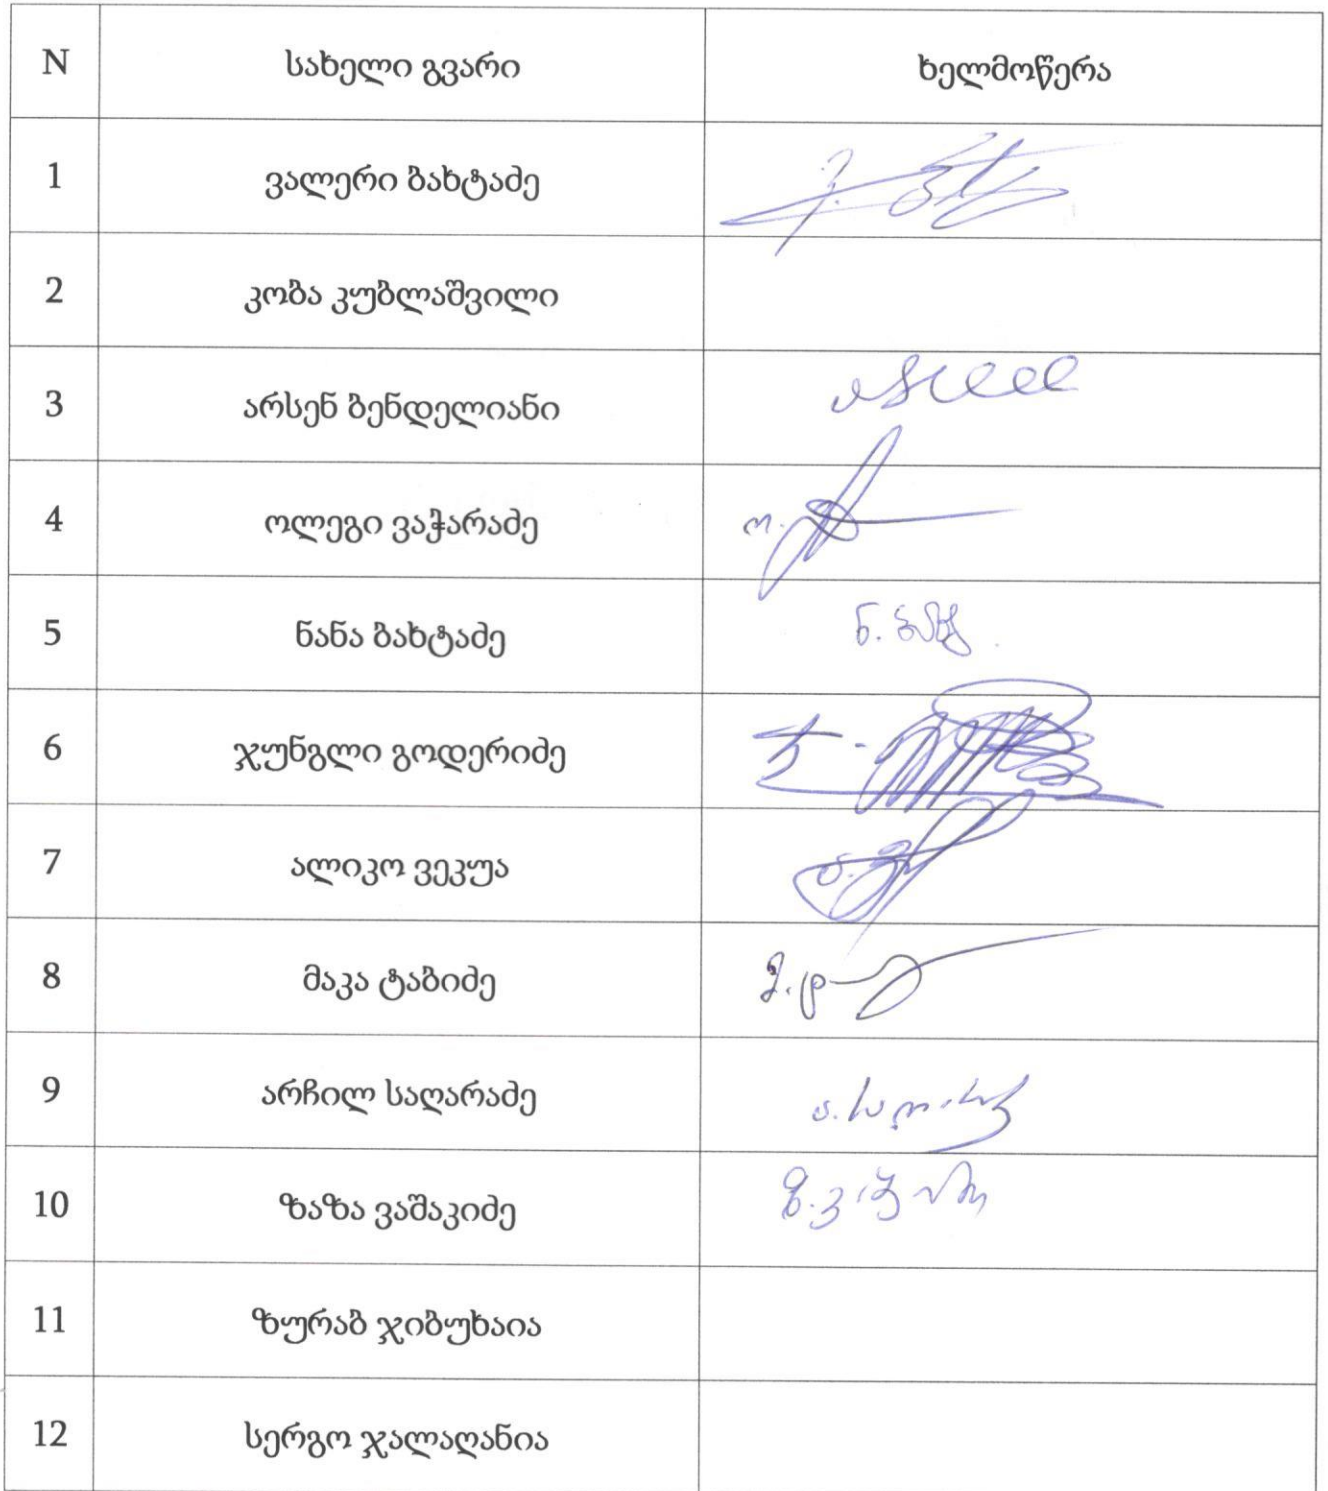 N სახელი გვარი ხელმოწერა
1 ვალერი ბახტაძე
2 კობა კუბლაშვილი
3 არსენ ბენდელიანი
4 ოლეგი ვაჭარაძე
5 ნანა ბახტაძე
6 ჯუნგლი გოდერიძე
7 ალიკო ვეკუა
8 მაკა ტაბიძე
9 არჩილ საღარაძე
10 ზაზა ვაშაკიძე
11 ზურაბ ჯიბუხაია
12 სერგო ჯალაღანია